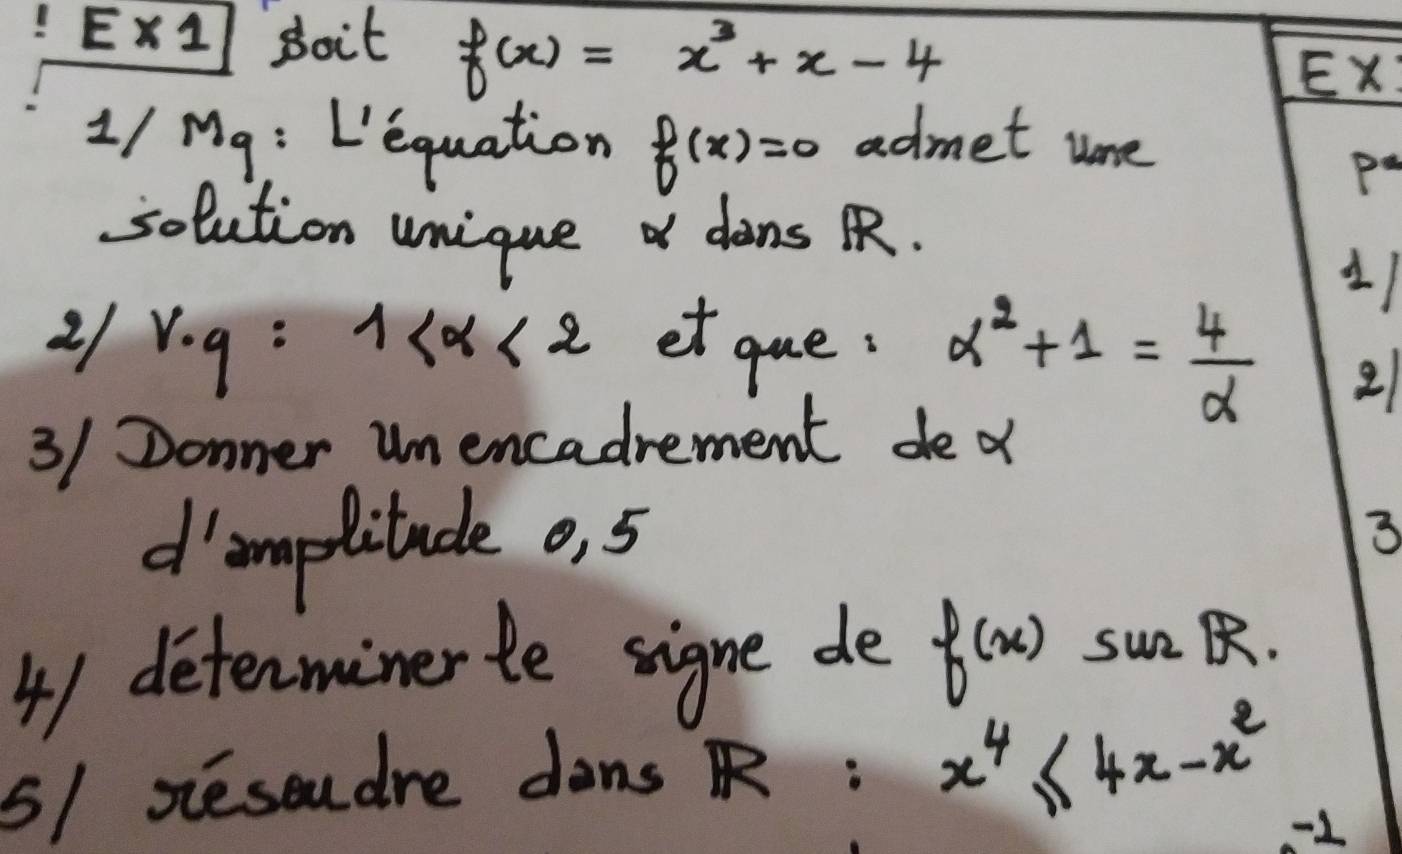 ! EX1 Soit f(x) = x³ + x - 4
! 1/ Mq: L'équation f(x)=0 admet une
solution unique α dans ℝ.
2/ V.q : 1<α<2 et que : α²+1 = 4/α
3/ Donner un encadrement de α
d'amplitude 0,5
4/ déterminer le signe de f(x) sur ℝ.
5/ résoudre dans ℝ : x⁴ ⩽ 4x-x²
-1
EX
1/
2/
3